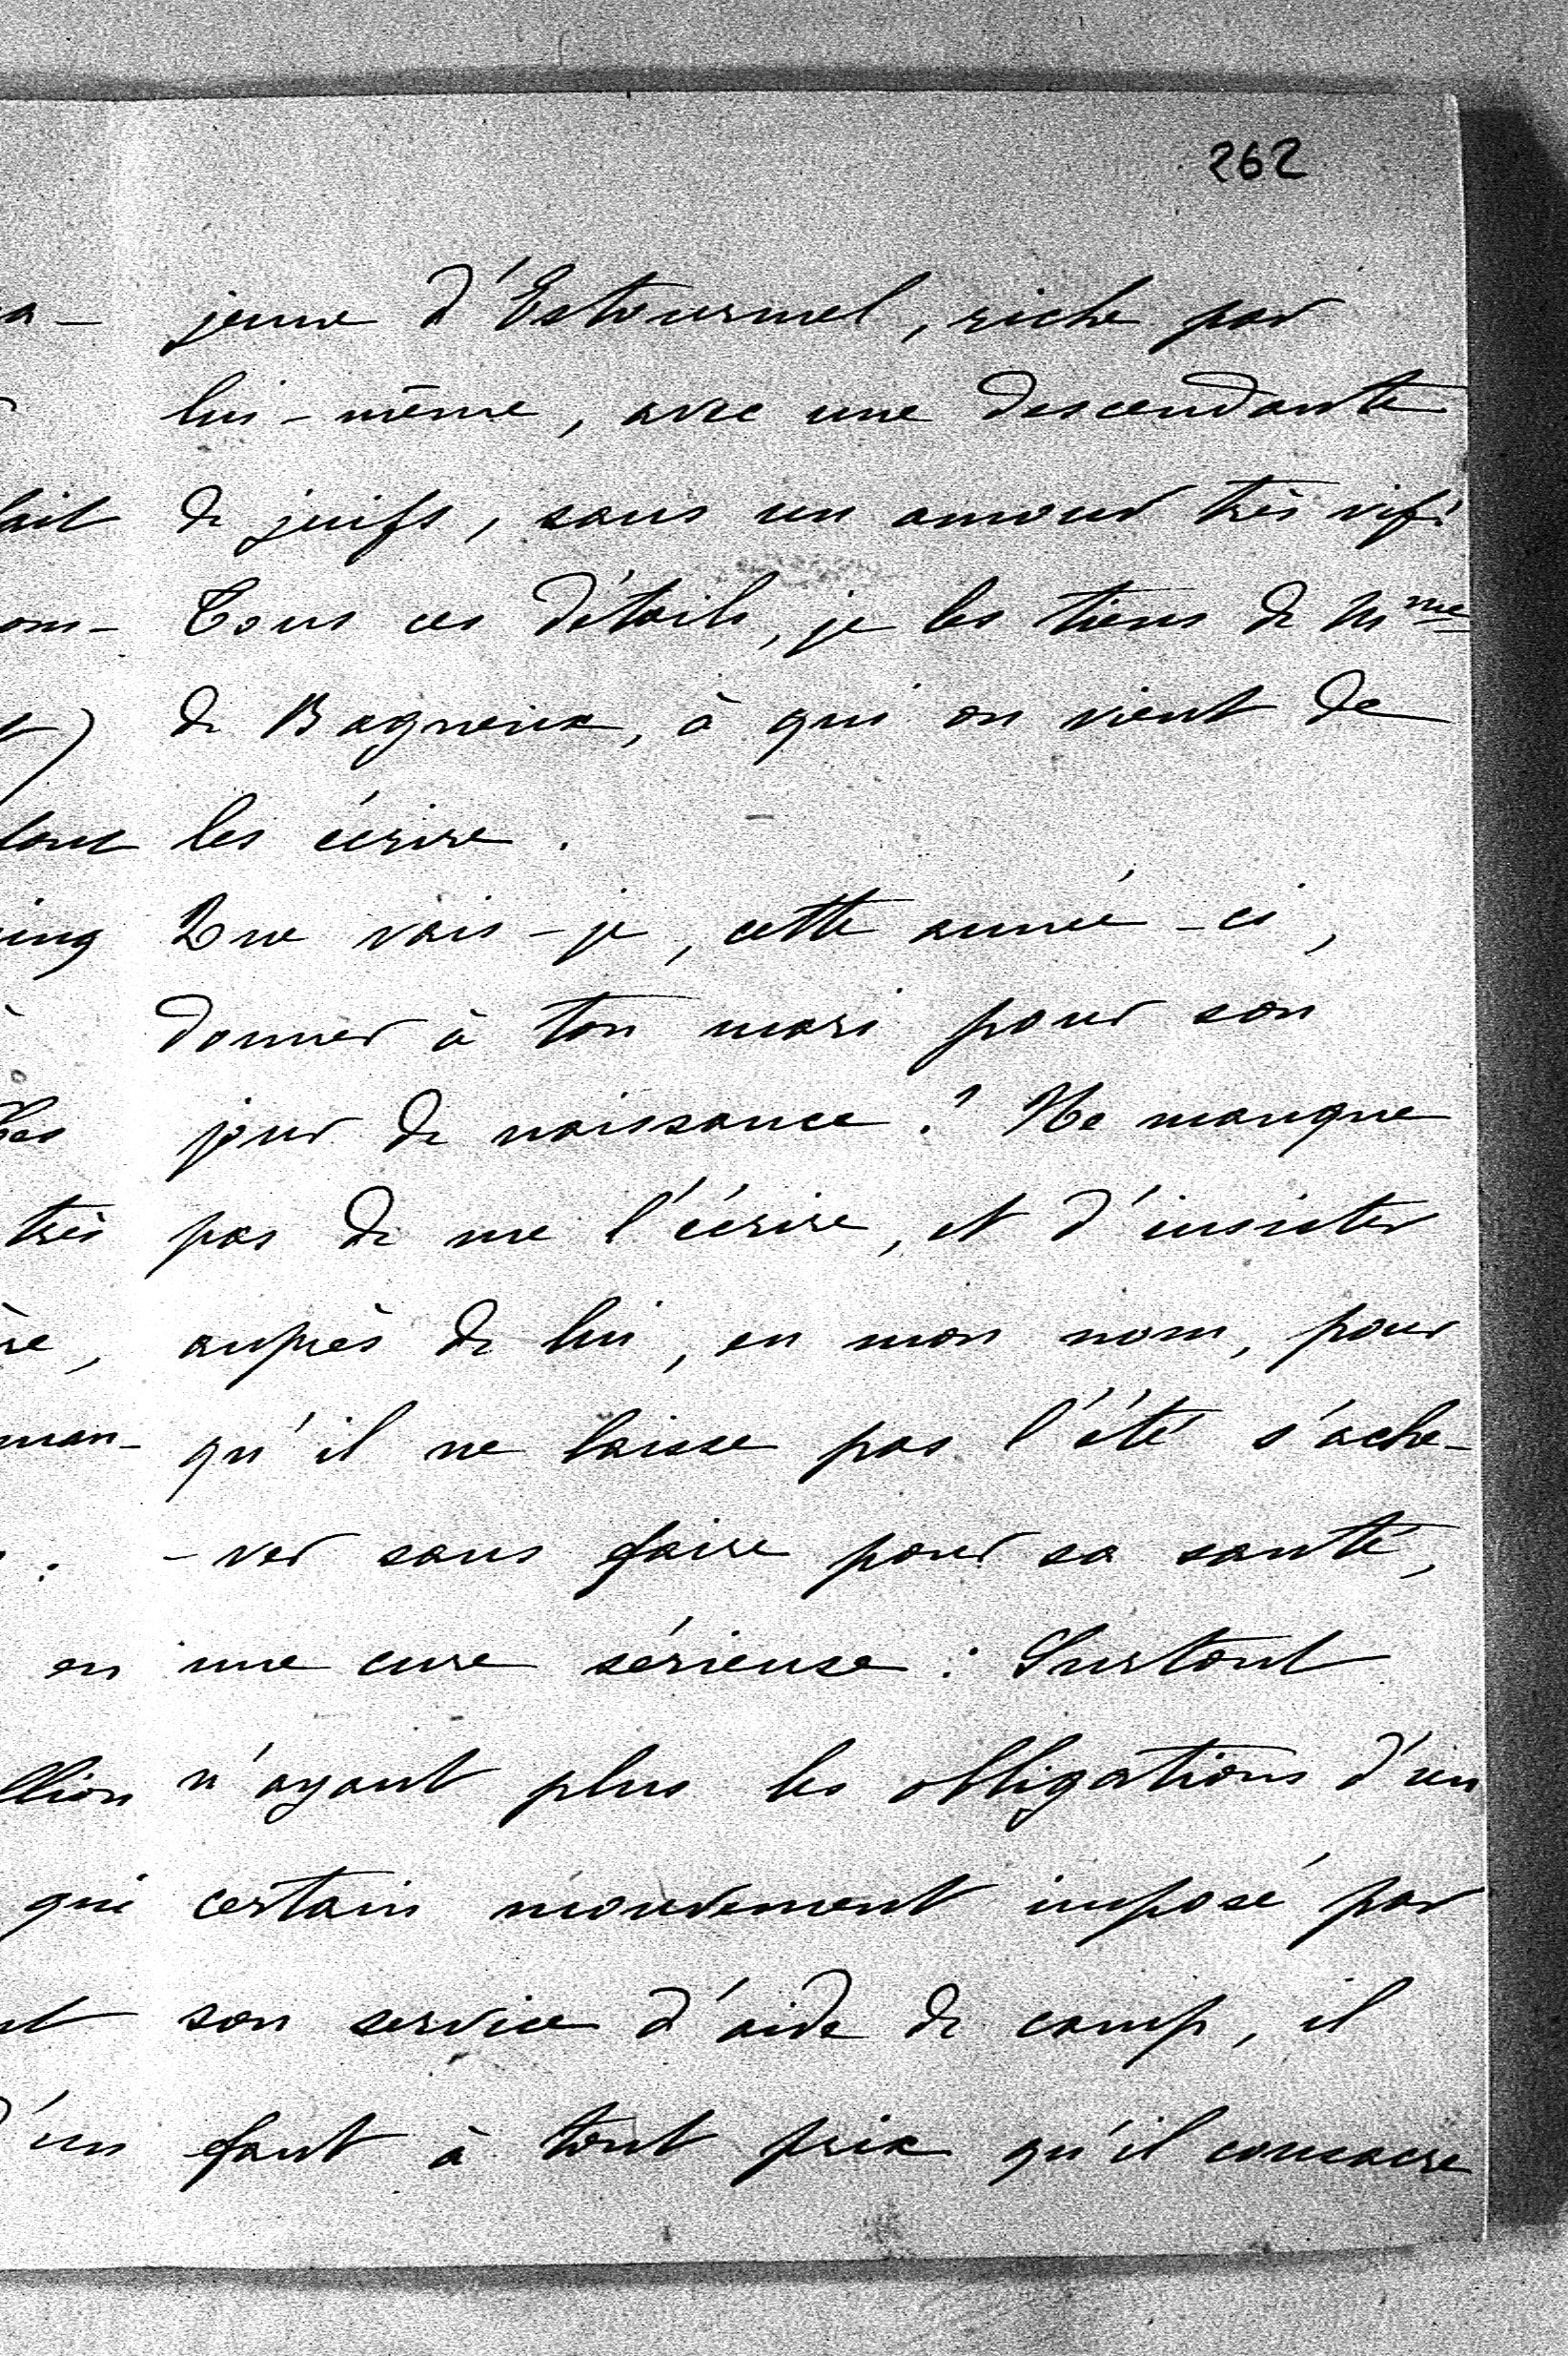 262
jeune d'Estourmel, riche par
lui-même, avec une descendante
de juifs, sans un amour très vif!
Tous ces détails, je les tiens de Mme
de Bagneux, à qui on vient de
les écrire.
Que vais-je, cette année-ci,
donner à ton mari pour son
jour de naissance? Ne manque
pas de me l'écrire, et d'insister
auprès de lui, en mon nom, pour
qu'il ne laisse pas l'été s'ache-
-ver sans faire pour sa santé,
une cure sérieuse: Surtout
n'ayant plus les obligations d'un
certain mouvement imposé par
son service d'aide de camp, il
faut à tout prix qu'il consacre